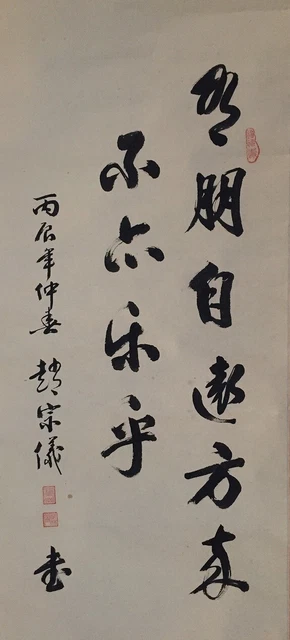 有朋自遠方来
不亦乐乎
丙辰年仲春 趙宗儀 书